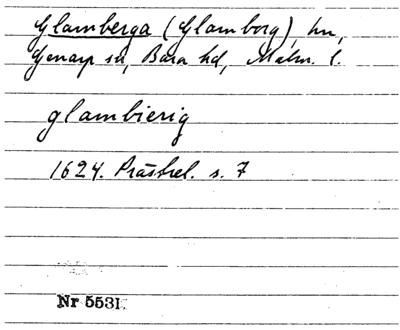 Glamberga (Glamborg), hn,
Genarp sn, Bara hd, Malm. l.
glambierig
1624. Prästrel. s. 7
Nr 5531.